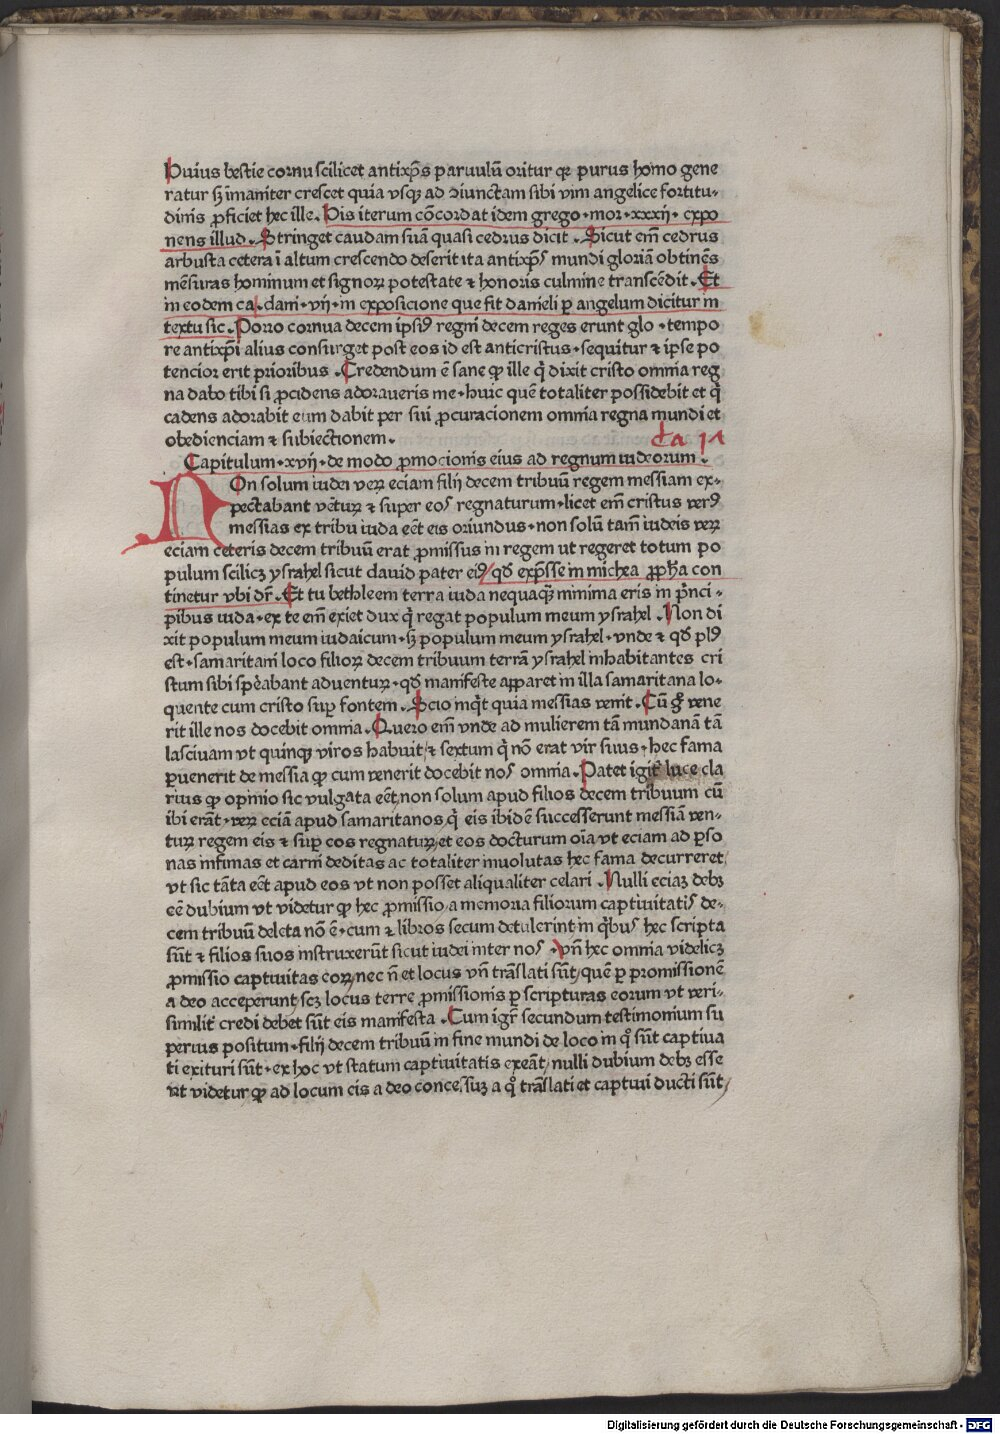 Huius bestie cornu scilicet antixp̄s paruulū oritur qꝛ purus homo gene
ratur sꝫ īmaniter crescet quia vsqꝫ ad ꝯiunctam sibi vim angelice fortitu-
dinis ꝓficiet hec ille. His iterum cōcordat idem grego. mor. xxxij. expo
nens illud. Stringet caudam suā quasi cedrus dicit. Sicut em̄ cedrus
arbusta cetera ī altum crescendo deserit ita antixp̄s mundi gloriā obtinēs
mēsuras hominum et signoꝝ potestate ⁊ honoris culmine transcēdit. Et
in eodem ca. dani. vij. in exposicione que fit danieli ꝑ angelum dicitur in
textu sic. Porro cornua decem ipsiꝰ regni decem reges erunt glo. tempo
re antixp̄i alius consurget post eos id est anticristus. sequitur ⁊ ipse po
tencior erit prioribus. Credendum ē sane ꝙ ille q̄ dixit cristo omnia reg
na dabo tibi si ꝓcidens adoraueris me. huic quē totaliter possidebit et q̄
cadens adorabit eum dabit per sui ꝓcuracionem omnia regna mundi et
obedienciam ⁊ subiectionem.
Capitulum. xvij. de modo ꝓmocionis eius ad regnum iudeorum.
NOn solum iudei veꝝ eciam filij decem tribuū regem messiam ex-
pectabant vētuꝝ ⁊ super eos regnaturum. licet em̄ cristus verꝰ
messias ex tribu iuda eēt eis oriundus. non solū tam̄ iudeis veꝝ
eciam ceteris decem tribuū erat ꝓmissus in regem ut regeret totum po
pulum scilicꝫ ysrahel sicut dauid pater eiꝰ/ qd̓ exp̄sse in michea ꝓph̄a con
tinetur vbi dr̄. Et tu bethleem terra iuda nequaqꝫ minima eris in p̄nci-
pibus iuda. ex te em̄ exiet dux q̄ regat populum meum ysrahel. Non di
xit populum meum iudaicum. sꝫ populum meum ysrahel. vnde ⁊ qd̓ plꝰ
est. samaritani loco filioꝝ decem tribuum terrā ysrahel inhabitantes cri
stum sibi sperabant aduentuꝝ. qd̓ manifeste apparet in illa samaritana lo-
quente cum cristo suꝑ fontem. Scio inq̄t quia messias venit. Cū gͦ vene
rit ille nos docebit omnia. Quero em̄ vnde ad mulierem tā mundanā tā
lasciuam vt quinqꝫ viros habuit/ ⁊ sextum q̄ nō erat vir suus. hec fama
ꝑuenerit de messia ꝙ cum venerit docebit nos omnia. Patet igit̄ luce cla
rius ꝙ opinio sic vulgata eēt/ non solum apud filios decem tribuum cū
ibi erāt. veꝝ eciā apud samaritanos/ q̄ eis ibidē successerunt messiā ven-
tuꝝ regem eis ⁊ suꝑ eos regnatuꝝ/ et eos docturum oīa vt eciam ad ꝑso
nas infimas et carni deditas ac totaliter inuolutas hec fama decurreret/
vt sic tāta eēt apud eos vt non posset aliqualiter celari. Nulli eciaꝫ debꝫ
eē dubium vt videtur ꝙ hec ꝓmissio/ a memoria filiorum captiuitatis de-
cem tribuū deleta nō ē. cum ⁊ libros secum detulerint/ in q̄bus hec scripta
sūt ⁊ filios suos instruxerūt sicut iudei inter nos. vn̄ hec omnia videlicꝫ
ꝓmissio captiuitas eoꝝ/ nec n̄ et locus vn̄ trāslati sūt/ quē ꝑ promissionē
a deo acceperunt/ scꝫ locus terre ꝓmissionis ꝑ scripturas eorum vt veri-
similit̄ credi debet sūt eis manifesta. Cum igr̄ secundum testimonium su
perius positum. filij decem tribuū in fine mundi de loco in qͦ sūt captiua
ti exituri sūt. ex hoc vt statum captiuitatis exeāt/ nulli dubium debꝫ esse
vt videtur/ ꝙ ad locum eis a deo concessuꝫ a qͦ trāslati et captiui ducti sūt/
Digitalisierung gefördert durch die Deutsche Forschungsgemeinschaft - DFG